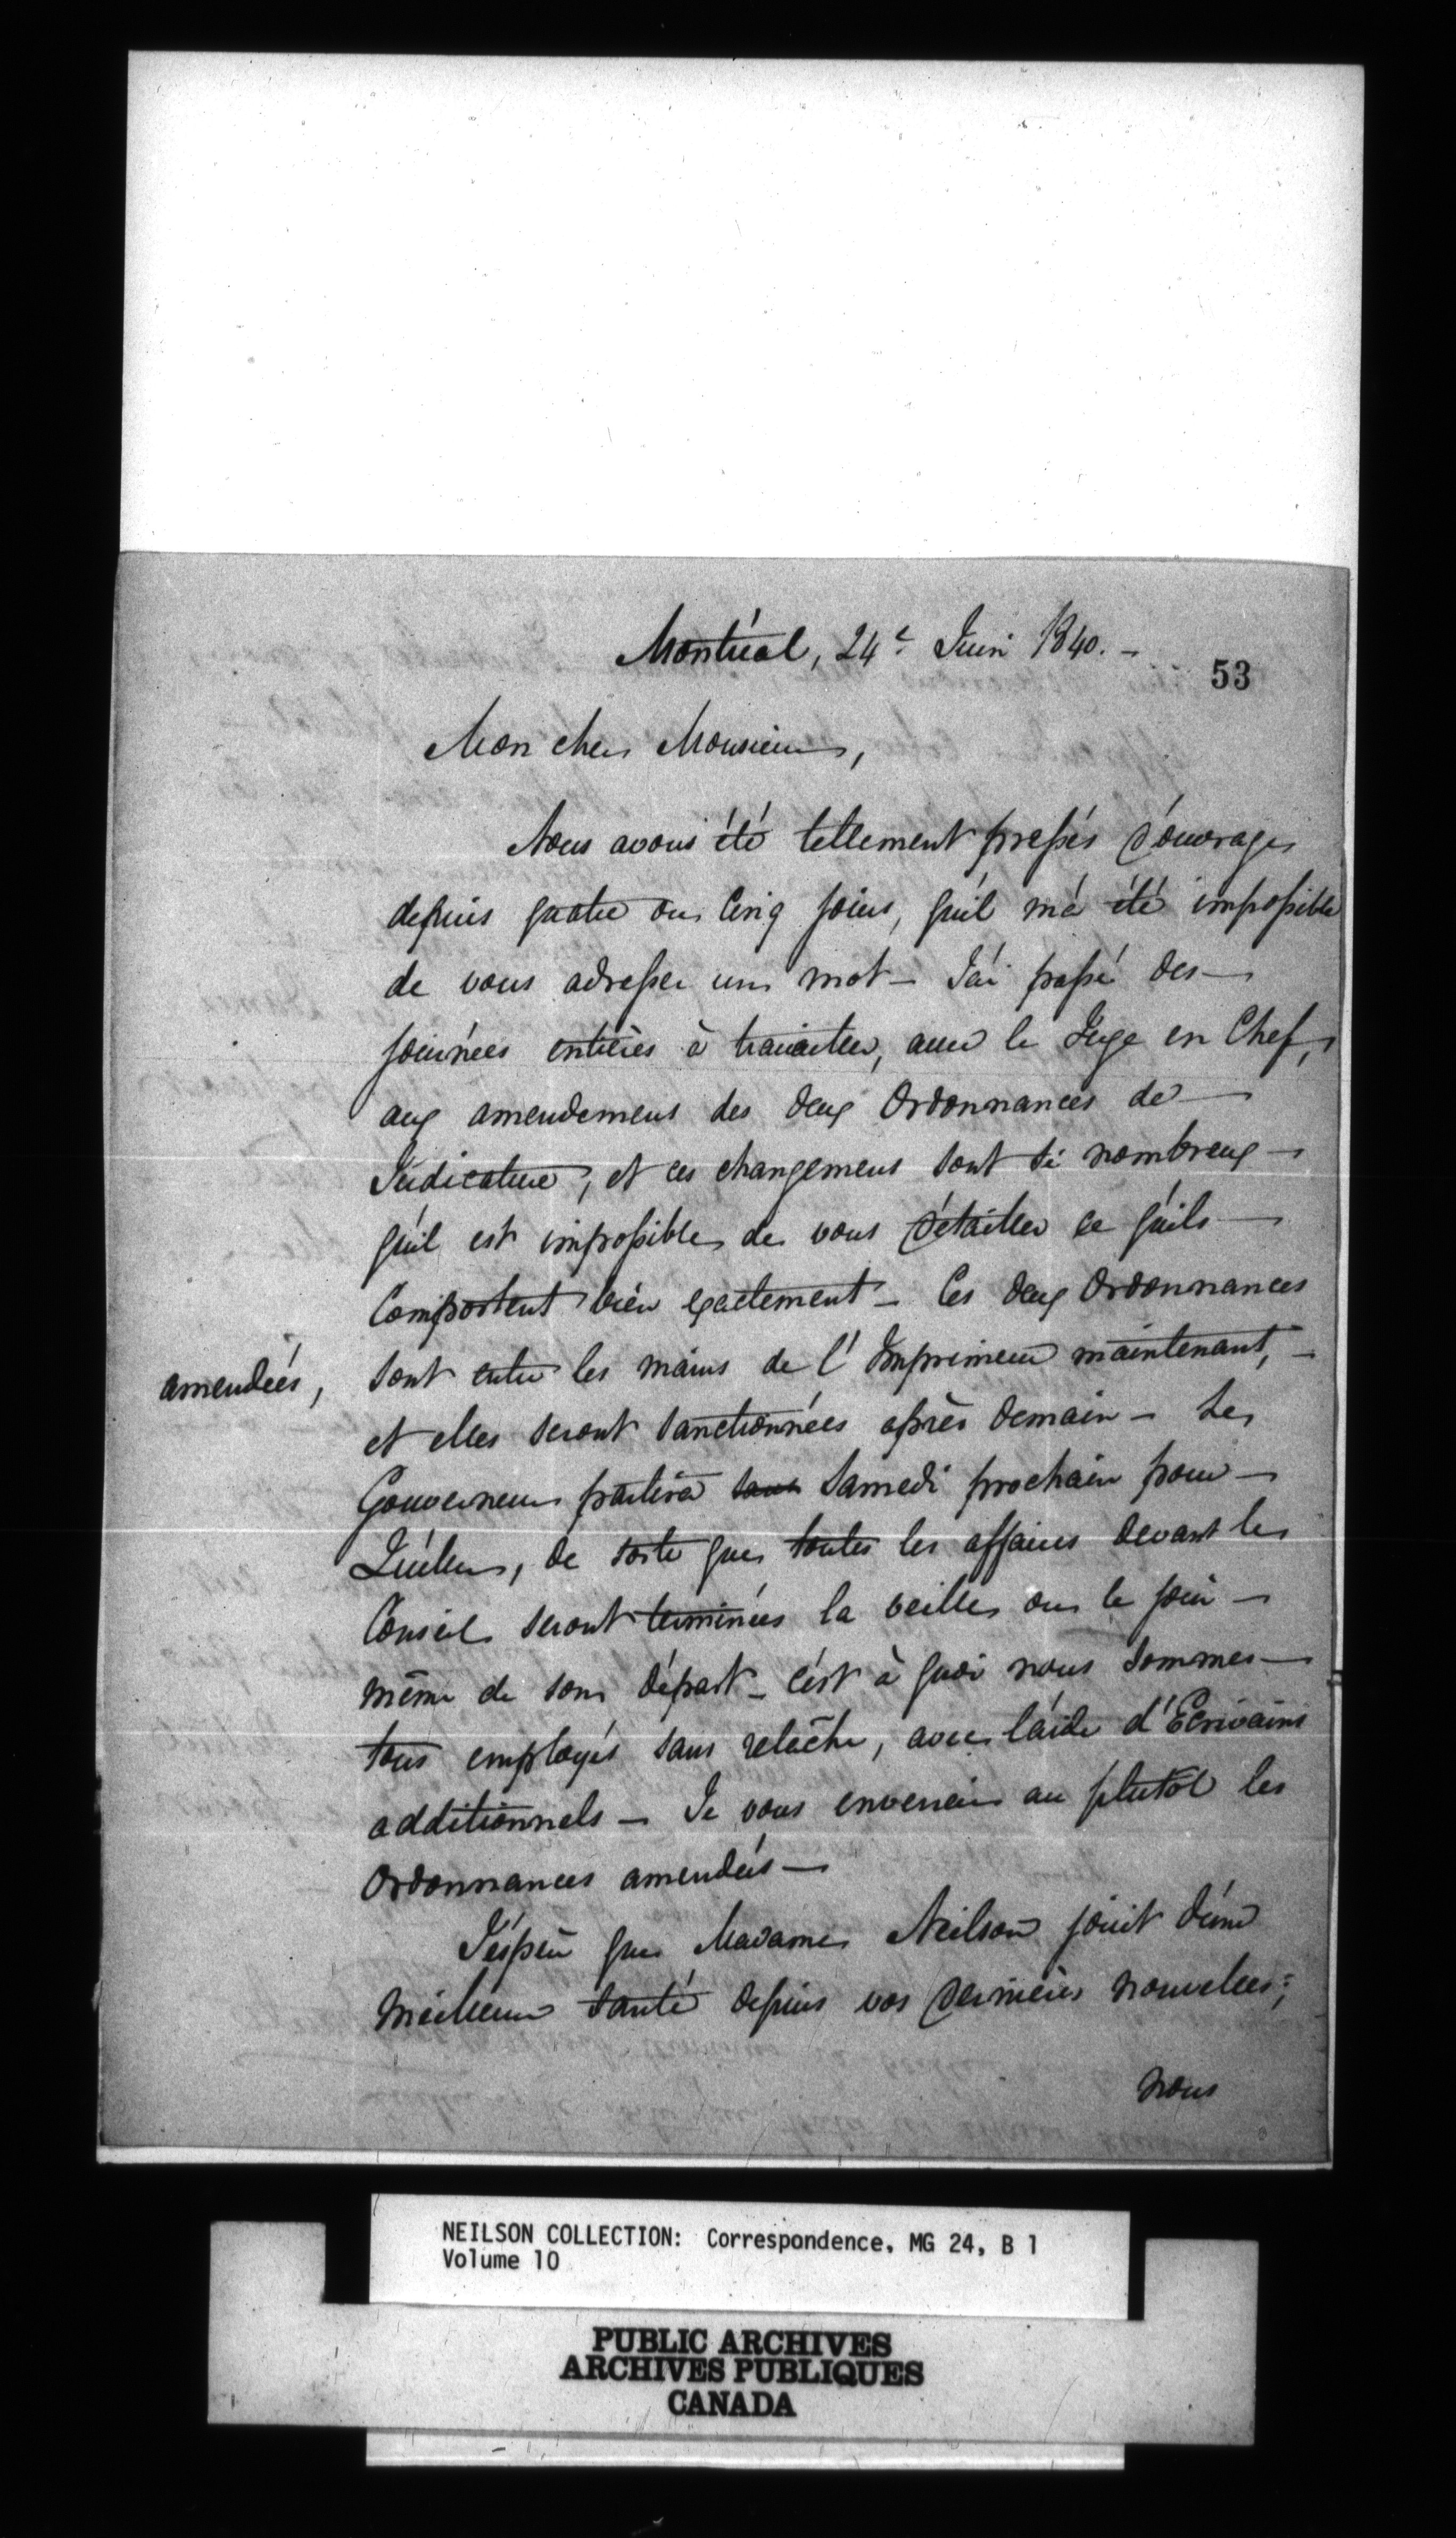 Montréal, 24e Juin 1840. —
53
Mon cher Monsieur,
Nous avons été tellement pressés d'ouvrage
depuis quatre ou cinq jours, qu'il m'a été impossible
de vous adresser un mot — J'ai passé des —
journées entières à travailler, avec le Juge en Chef,
aux amendemens des deux Ordonnances de —
Judicature, et ces changemens sont si nombreux —
qu'il est impossible de vous détailler ce qu'ils —
comportent bien exactement — Ces deux Ordonnances
amendées,
sont entre les mains de l'Imprimeur maintenant, —
et elles seront sanctionnées après demain — Le
Gouverneur partira Samedi prochain pour —
Québec, de sorte que toutes les affaires devant le
Conseil seront terminées la veille ou le jour —
même de son départ — c'est à quoi nous sommes —
tous employés sans relâche, avec l'aide d'Ecrivains
additionnels — Je vous enverrai au plutôt les
Ordonnances amendées —
J'espère que Madame Neilson jouit d'une
meilleure santé depuis vos dernières nouvelles;
nous
NEILSON COLLECTION: Correspondence, MG 24, B 1
Volume 10
PUBLIC ARCHIVES
ARCHIVES PUBLIQUES
CANADA